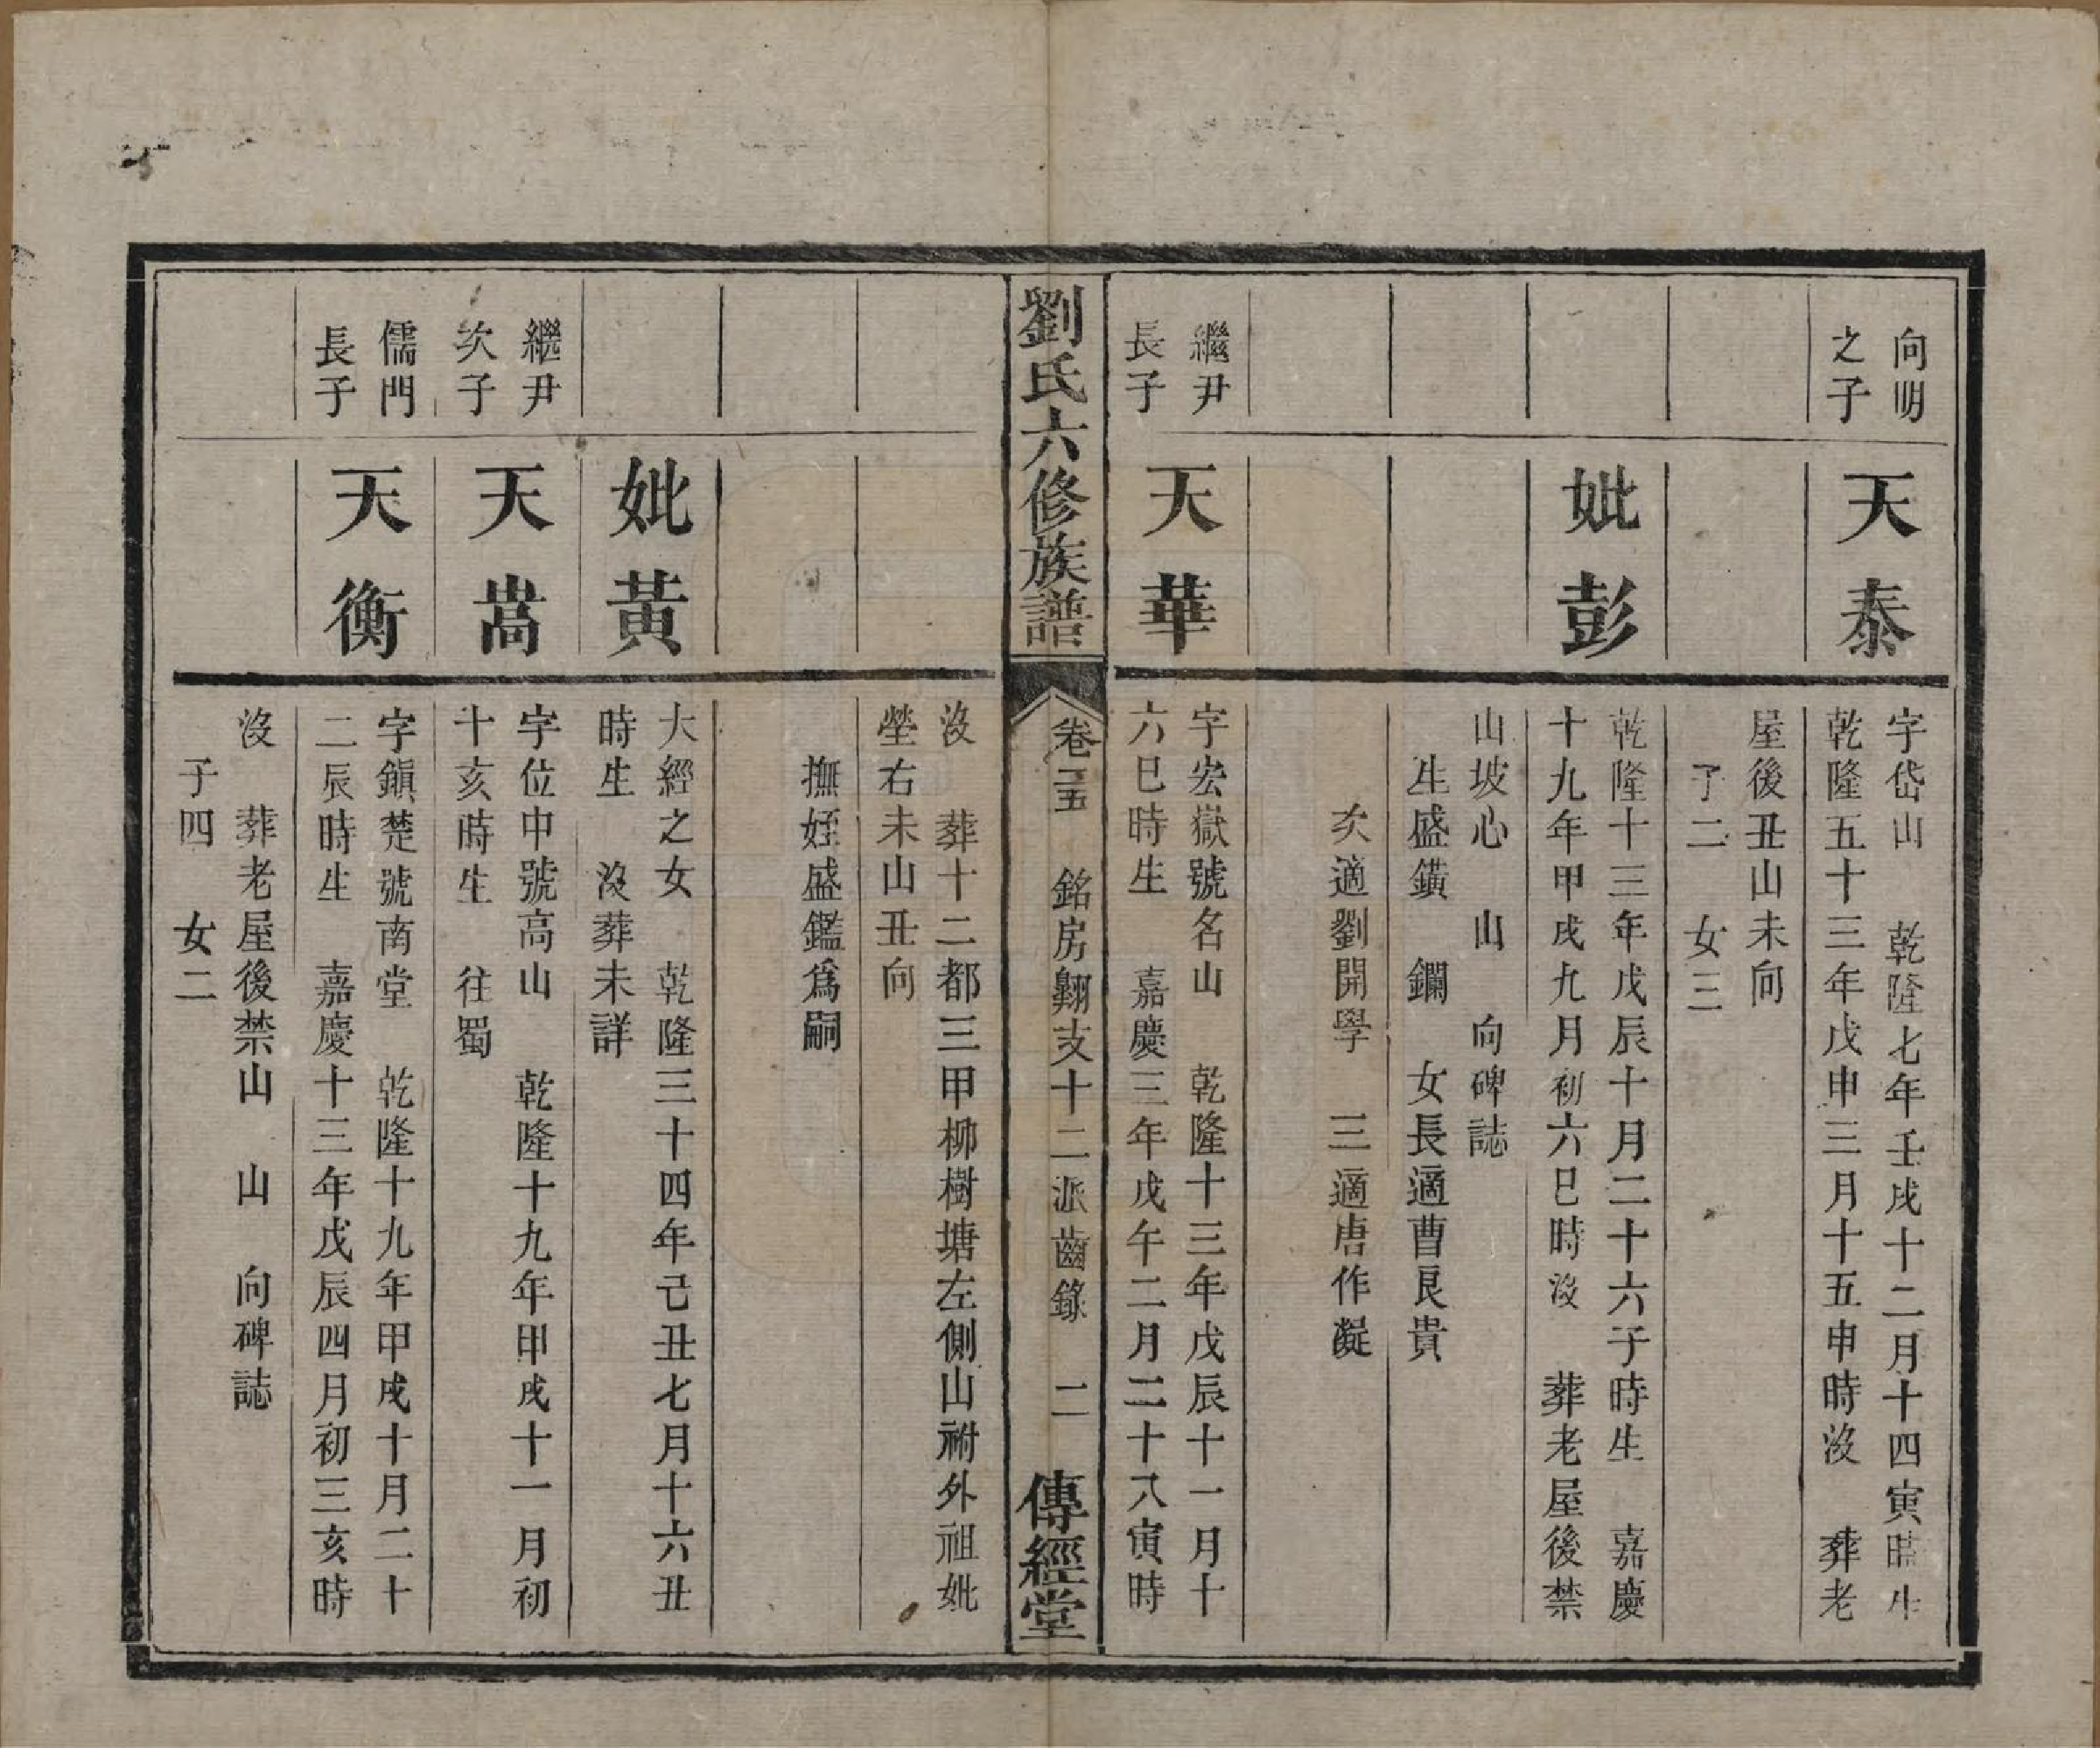 向明
之子
天泰
字岱山　乾隆七年壬戌十二月十四寅時生
乾隆五十三年戊申三月十五申時沒　葬老
屋後丑山未向
子二　女三
妣彭
乾隆十三年戊辰十月二十六子時生　嘉慶
十九年甲戌九月初六巳時沒　葬老屋後禁
山坡心　山　向碑誌
生盛鐄　鑭　女長適曹良貴
次適劉開學　三適唐作凝
繼尹
長子
天華
字宏嶽號名山　乾隆十三年戊辰十一月十
六巳時生　嘉慶三年戊午二月二十八寅時
劉氏六修族譜
卷三五　銘房翺支十二派齒錄　二
傳經堂
沒　葬十二都三甲柳樹塘左側山祔外祖妣
塋右未山丑向
撫姪盛鑑爲嗣
妣黃
大經之女　乾隆三十四年己丑七月十六丑
時生　沒葬未詳
繼尹
次子
天嵩
字位中號高山　乾隆十九年甲戌十一月初
十亥時生　往蜀
儒門
長子
天衡
字鎮楚號南堂　乾隆十九年甲戌十月二十
二辰時生　嘉慶十三年戊辰四月初三亥時
沒　葬老屋後禁山　山　向碑誌
子四　女二